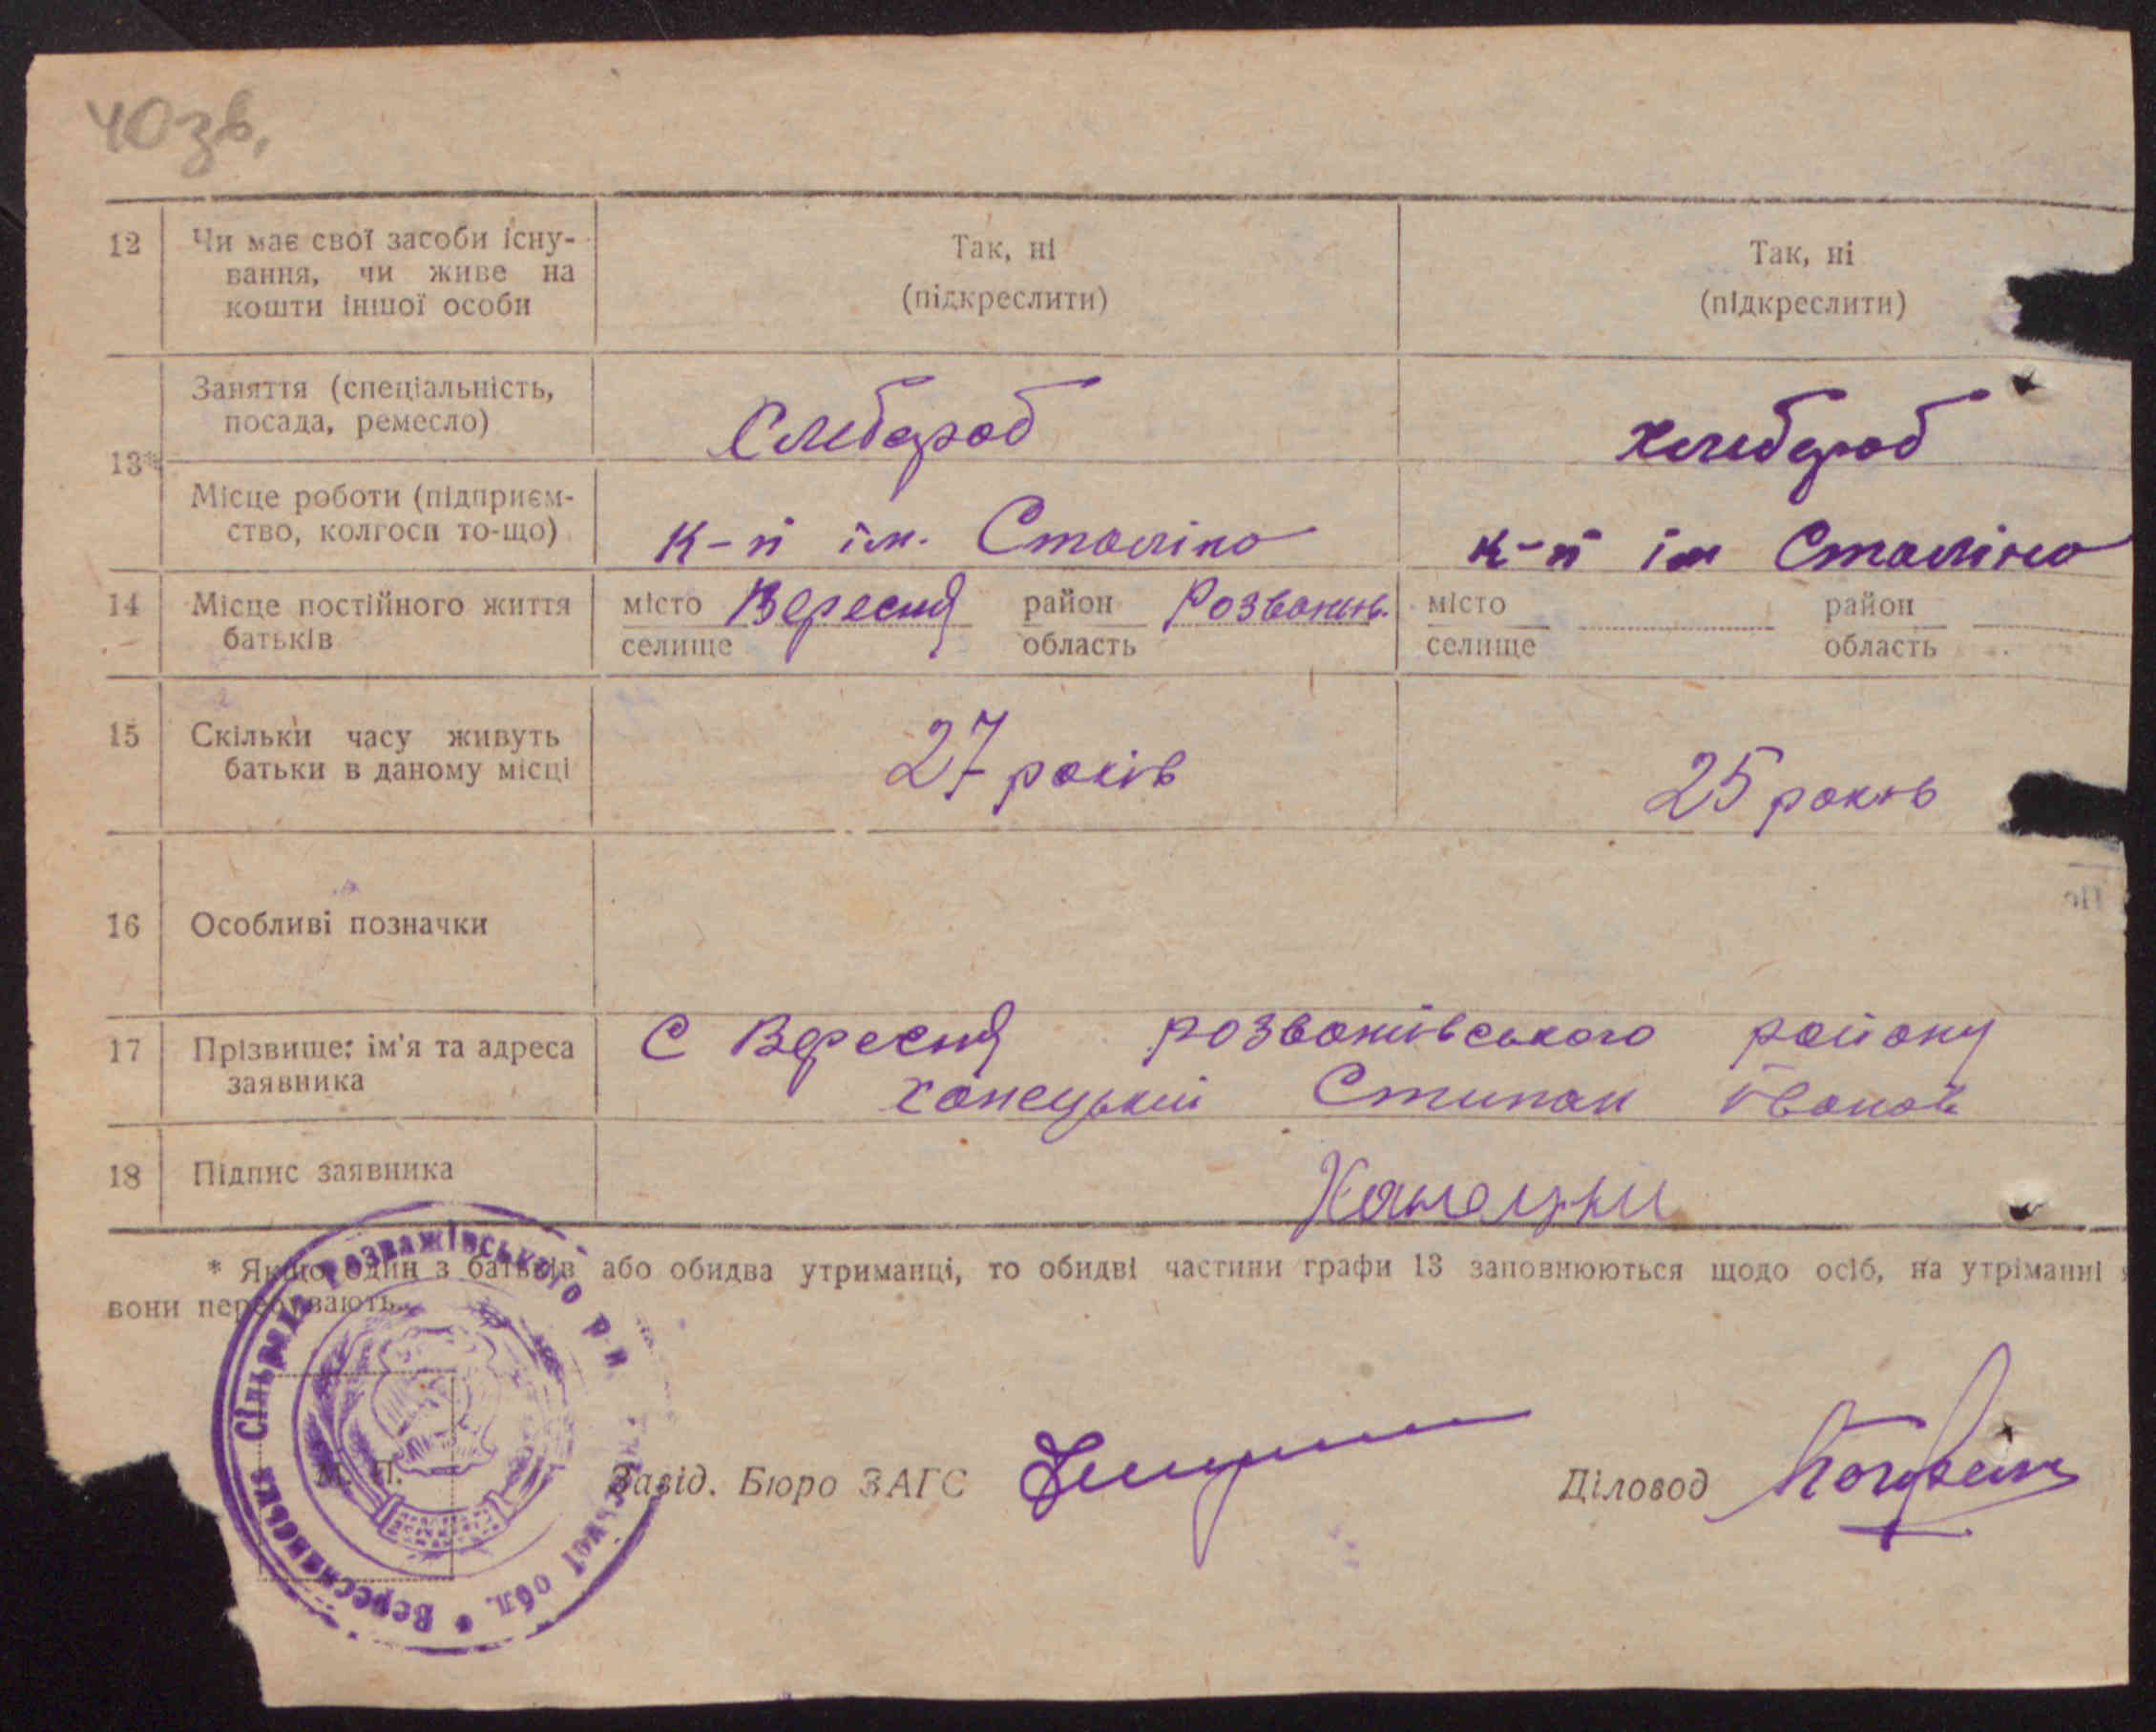 40 зв.
12 Чи має свої засоби існу- Так, ні Так, ні
вання, чи живе на (підкреслити) (підкреслити)
кошти іншої особи
Заняття (спеціальність,
посада, ремесло) Хлебароб хлебароб
13*
Місце роботи (підприєм-
ство, колгосп то-що) к-п ім. Сталіна к-п ім Сталіна
14 Місце постійного життя місто Вересня район Розважів. місто район
батьків селище область селище область
15 Скільки часу живуть 27 років 25 років
батьки в даному місці
16 Особливі позначки
17 Прізвище: ім'я та адреса С Вересня розважівського району
заявника Ханецький Степан Іванов
18 Підпис заявника Ханецкий
* Якщо один з батьків або обидва утриманці, то обидві частини графи 13 заповнюються щодо осіб, на утріманні
вони перебувають.
Вереснянська Сільрада Розважівського р-н обл.
М. П.
Завід. Бюро ЗАГС Діловод